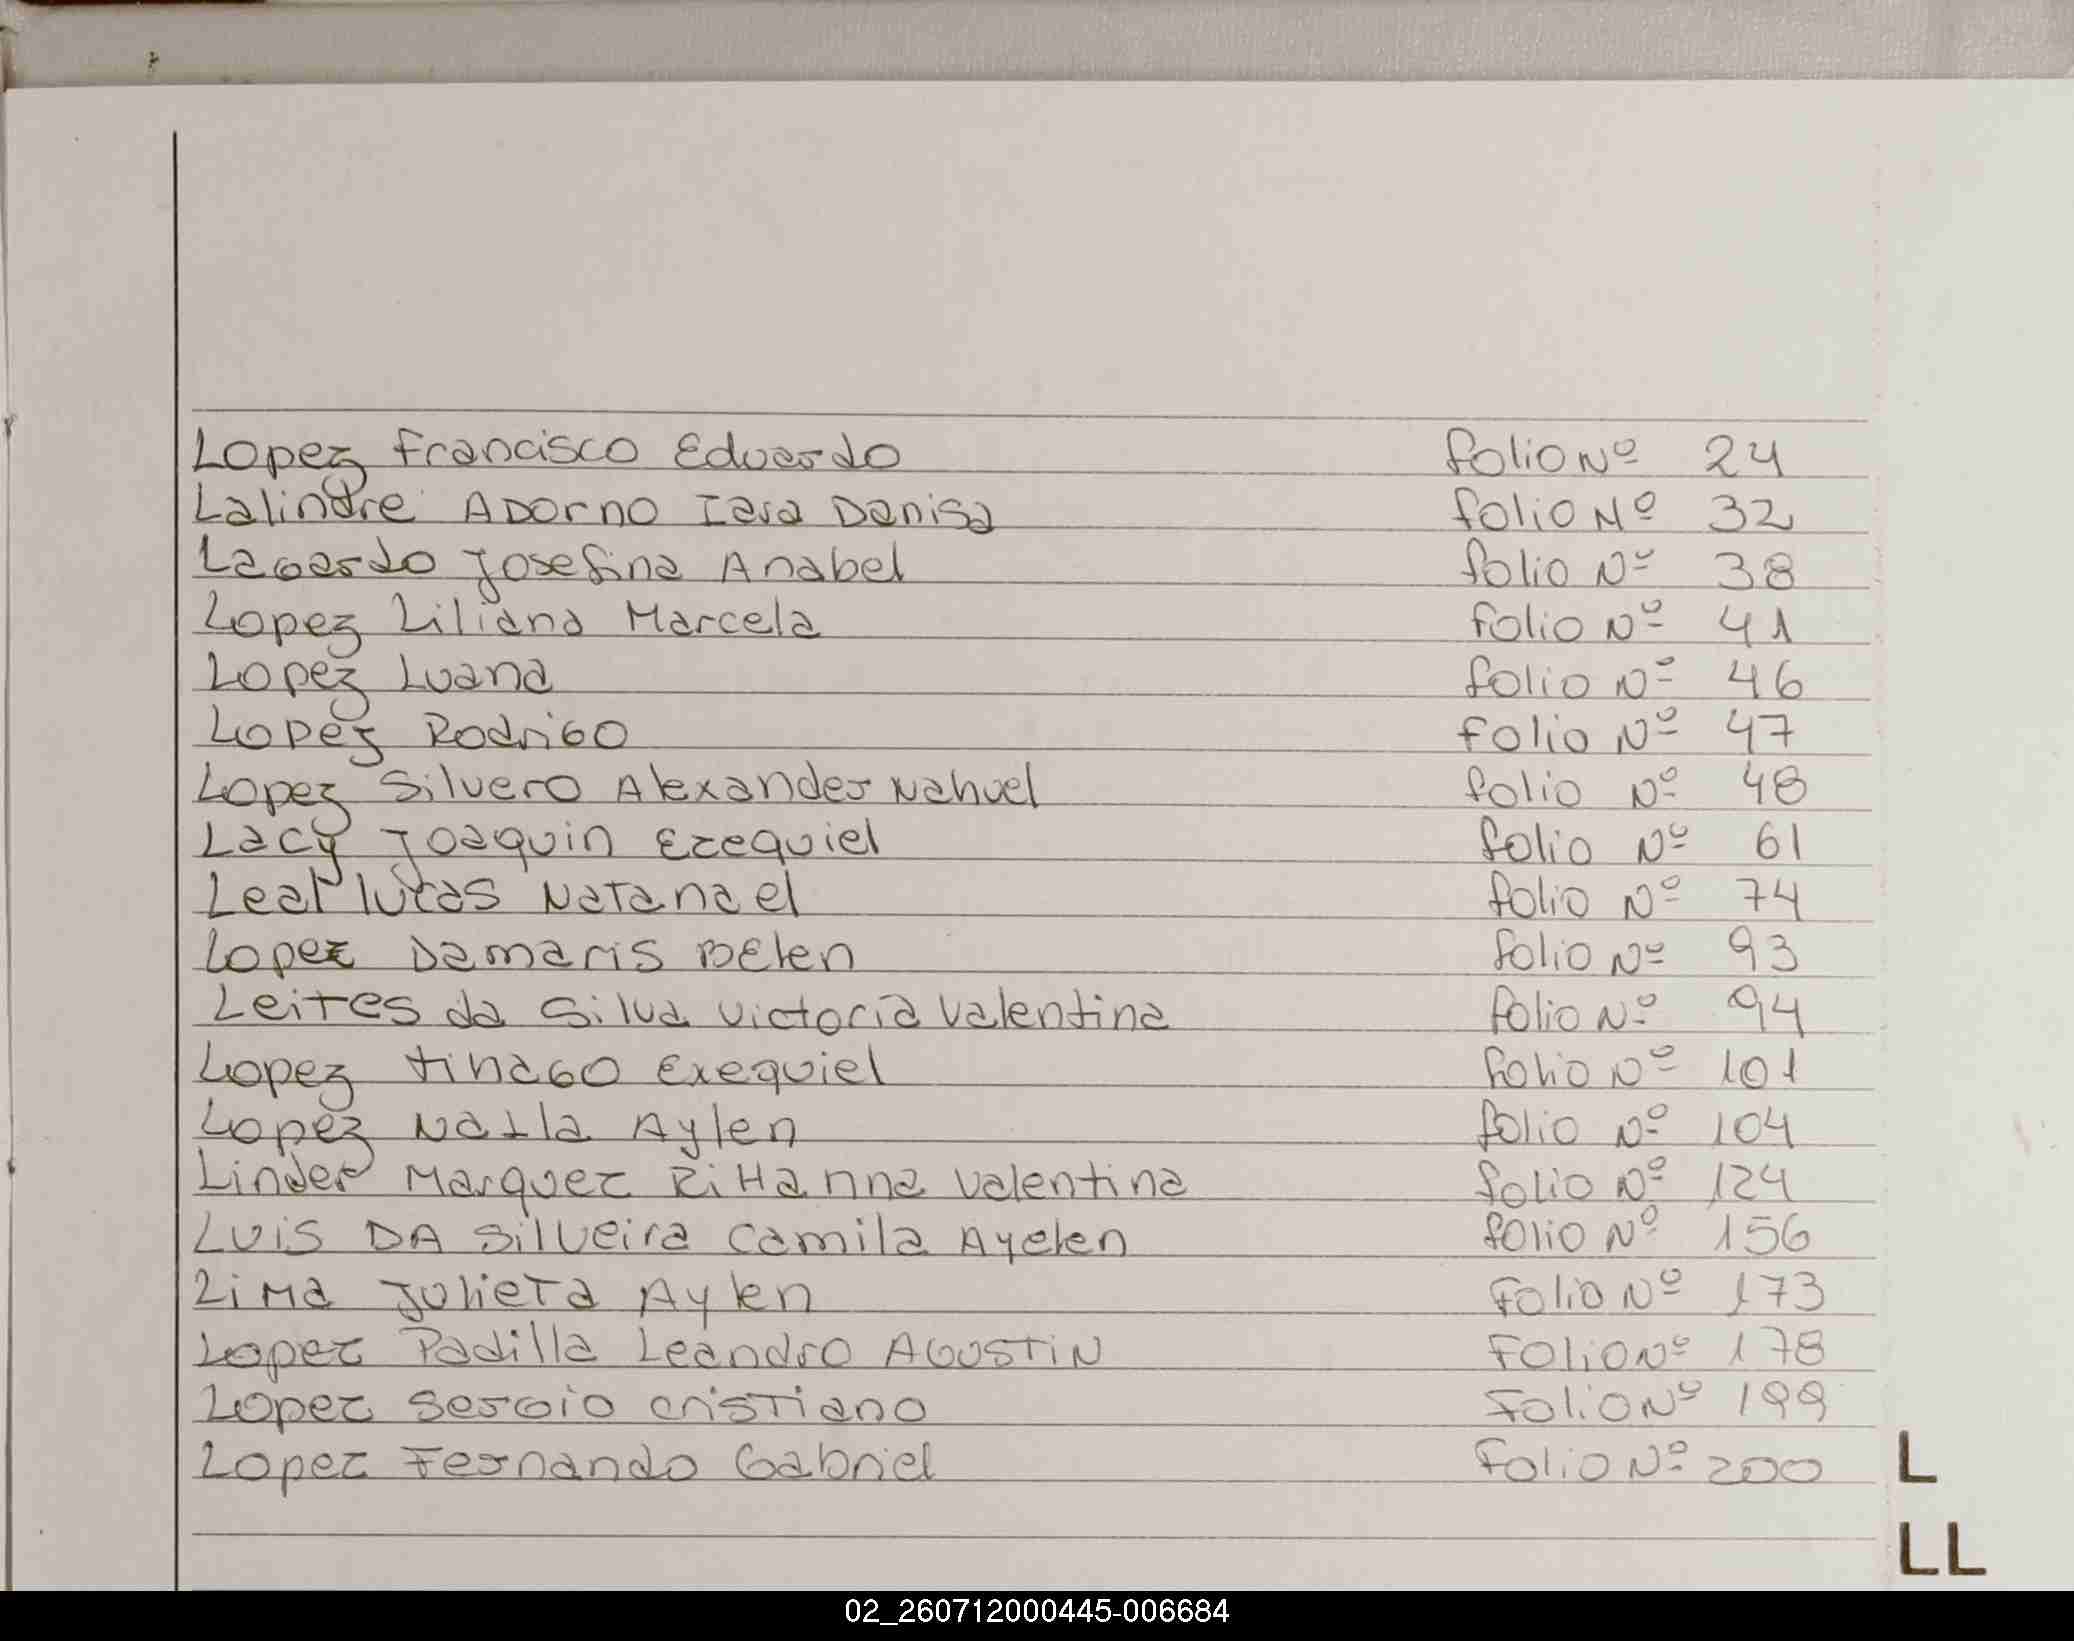 Lopez Francisco Eduardo folio Nº 24
Lalindre Adorno Iara Danisa folio Nº 32
Lagardo Josefina Anabel folio Nº 38
Lopez Liliana Marcela folio Nº 41
Lopez Luana folio Nº 46
Lopez Rodrigo folio Nº 47
Lopez Silvero Alexander Nahuel folio Nº 48
Lacy Joaquin Ezequiel folio Nº 61
Leal lucas Natanael folio Nº 74
Lopez Damaris Belen folio Nº 93
Leites da Silva Victoria Valentina folio Nº 94
Lopez tihago Exequiel folio Nº 101
Lopez Naila Aylen folio Nº 104
Linder Marquez RiHanna Valentina folio Nº 124
Luis DA Silveira Camila Ayelen folio Nº 156
Lima Julieta Aylen Folio Nº 173
Lopez Padilla Leandro AGUSTIN Folio Nº 178
Lopez Sergio Cristiano Folio Nº 199
Lopez Fernando Gabriel Folio Nº 200
L
LL
02_260712000445-006684